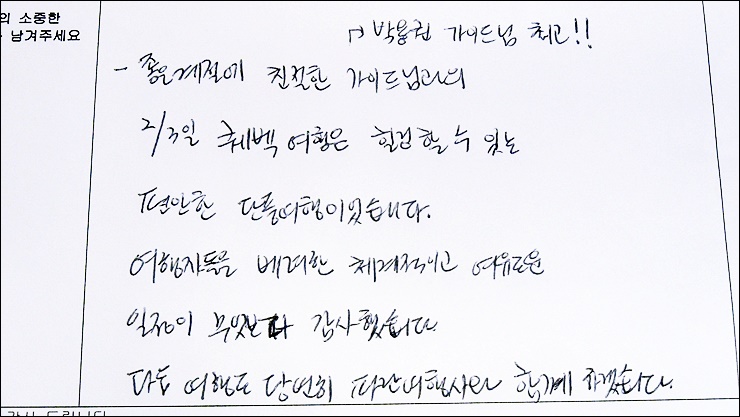 의 소중한
남겨주세요
→ 박용권 가이드님 최고!!
- 좋은계절에 친절한 가이드님과의
2/3일 퀘벡 여행은 힐링할 수 있는
편안한 단풍여행이었습니다.
여행자들을 배려한 체계적이고 여유로운
일정이 무엇보다 감사했습니다.
다음 여행도 당연히 파란여행사와 함께 하겠습니다.
감사 드립니다